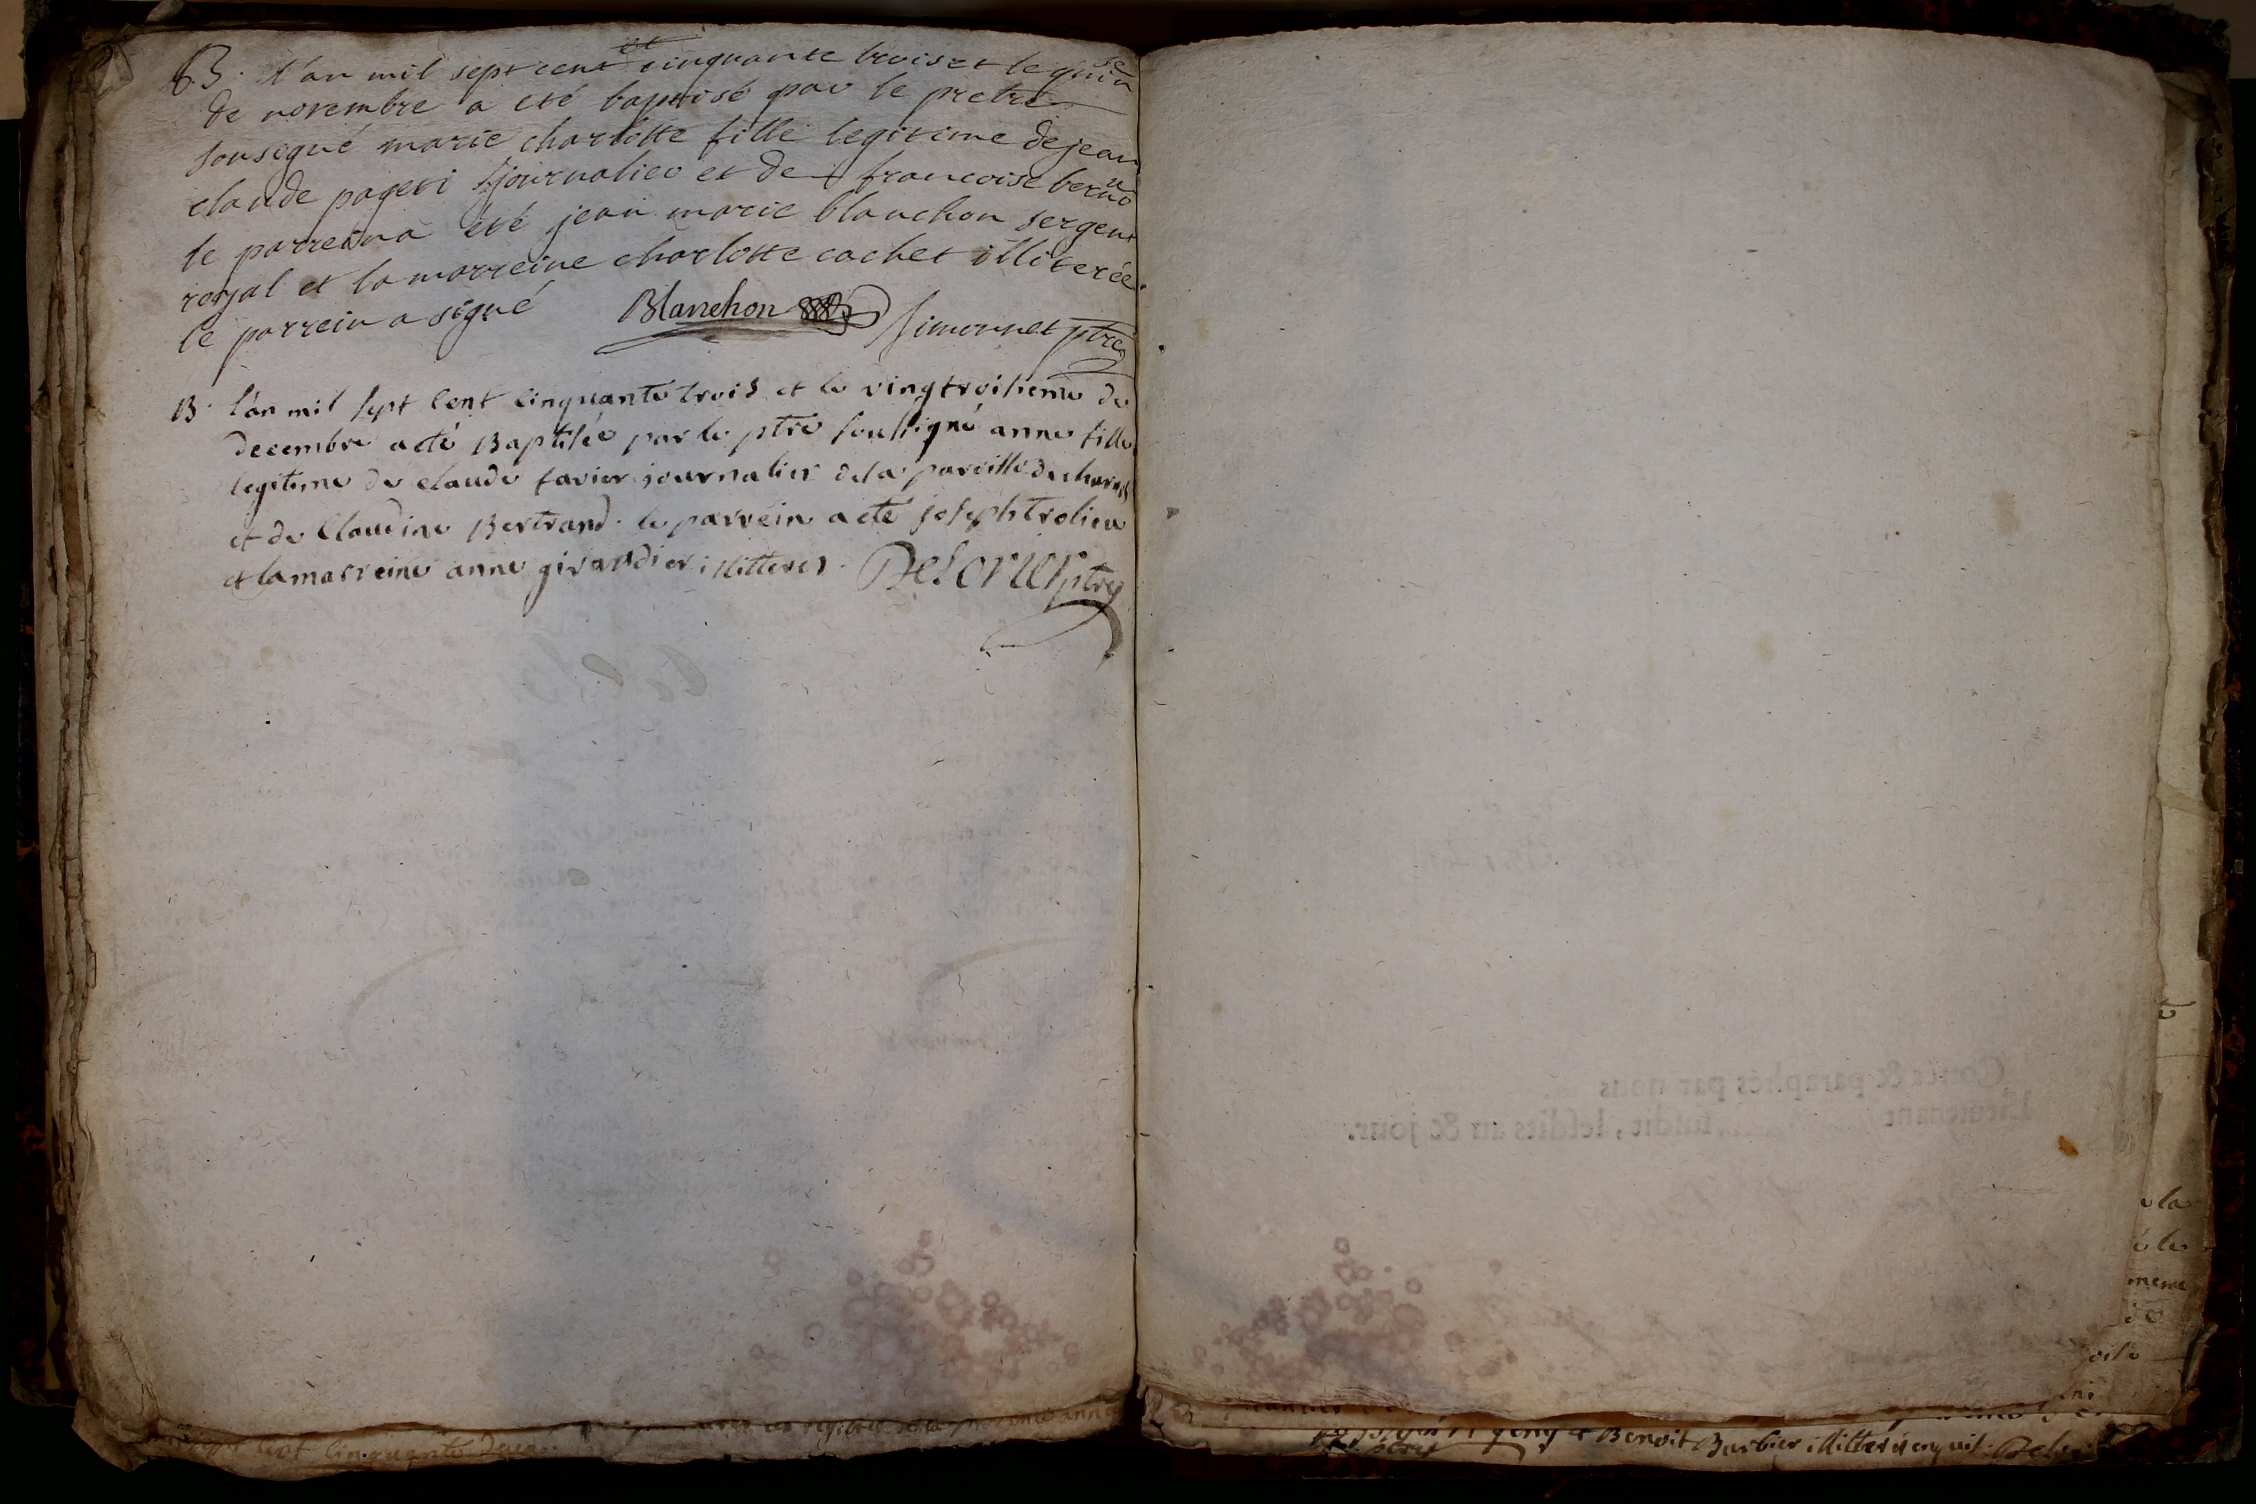 B. L'an mil sept cent cinquante trois et le quinse
de novembre a eté baptisé par le pretre
sousigné marie charlotte fille legitime de jean
claude pageti journalier et de francoise bernno
le parrein a eté jean marie blanchon sergent
royal et la marreine charlotte cachet illiterée.
le parrein a signé Blanchon Simonnet ptre
B. l'an mil sept cent cinquante trois et le vingtroisieme de
decembre a eté Baptisée par le ptre soussigné anne fille
legitime de claude favier journalier de la paroisse de
et de Claudine Bertrand. le parrein a eté joseph trolieu
et la marreine anne girardier illitteres. Delorier ptre
Cottés & paraphés par nous
Lieutenant susdit, lesdits an & jour.
cent cinquante deux
Benoit Barbier illitteré enquis.